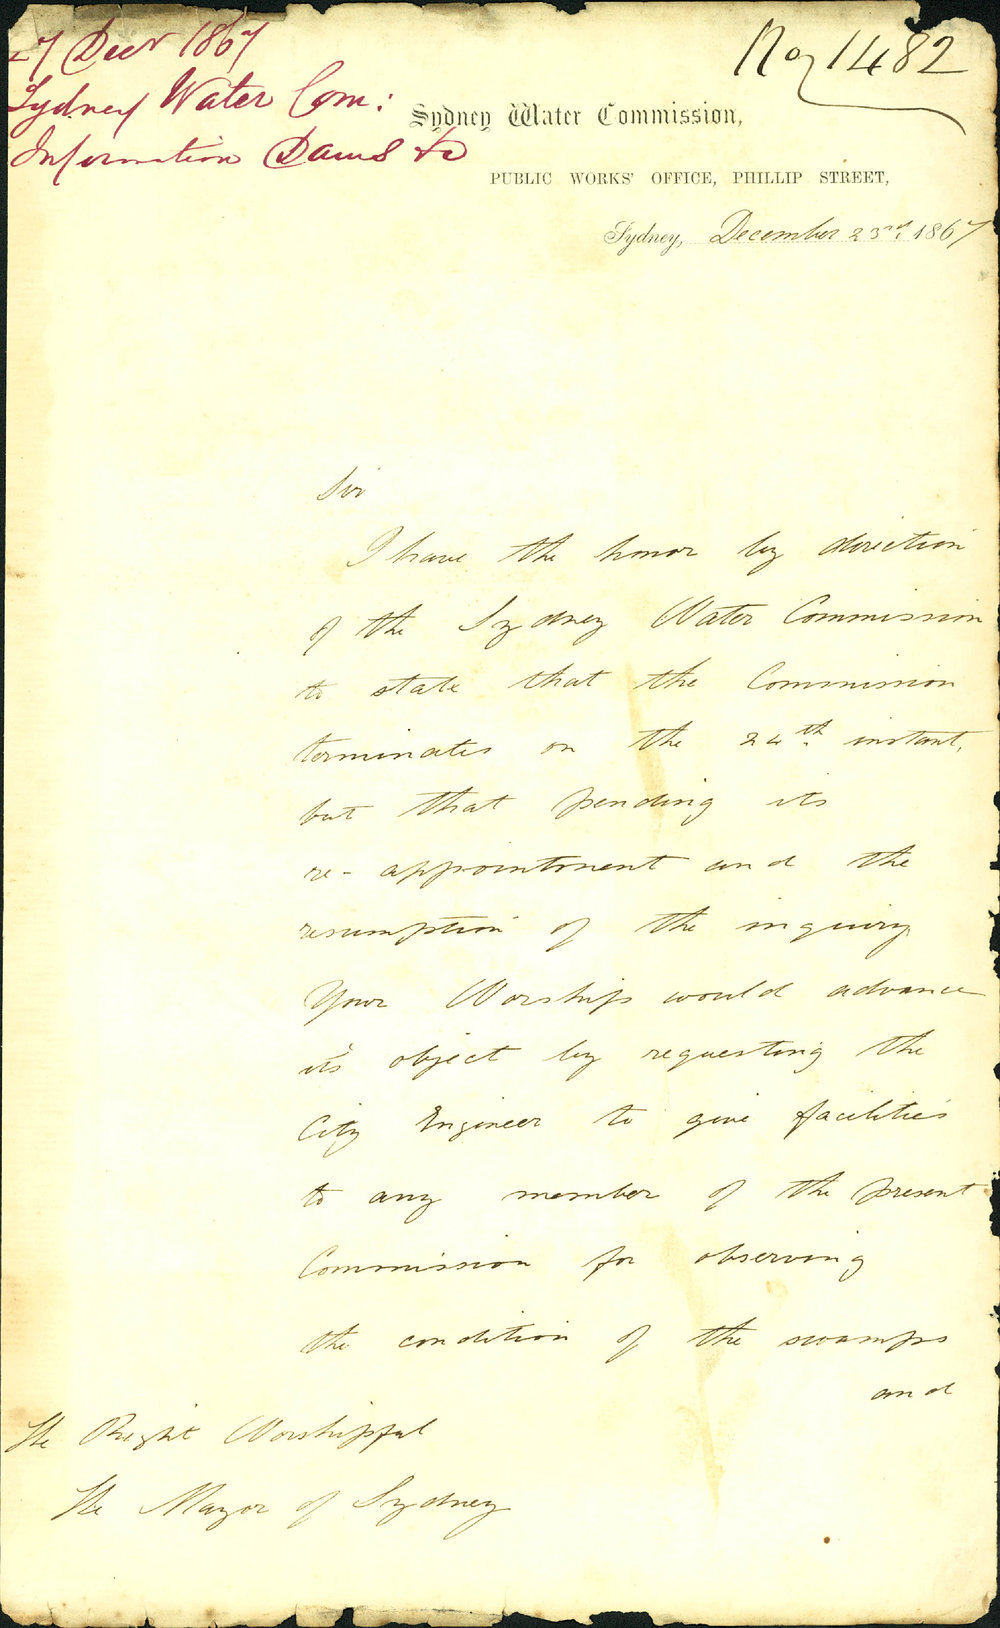 27 Decr 1867
Sydney Water Com:
Information Dams &c
No 1482
Sydney Water Commission,
PUBLIC WORKS' OFFICE, PHILLIP STREET,
Sydney, December 23rd. 1867
Sir
I have the honor by direction
of the Sydney Water Commission
to state that the Commission
terminates on the 24th. instant,
but that pending its
re-appointment and the
resumption of the inquiry
Your Worship would advance
its object by requesting the
City Engineer to give facilities
to any member of the present
Commission for observing
the condition of the swamps
and
The Right Worshipful
The Mayor of Sydney